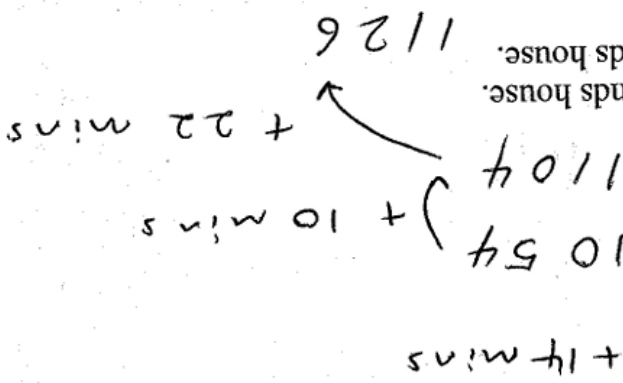 + 14 mins
10 54
+ 10 mins
1104
+ 22 mins
nds house.
ds house. 1126